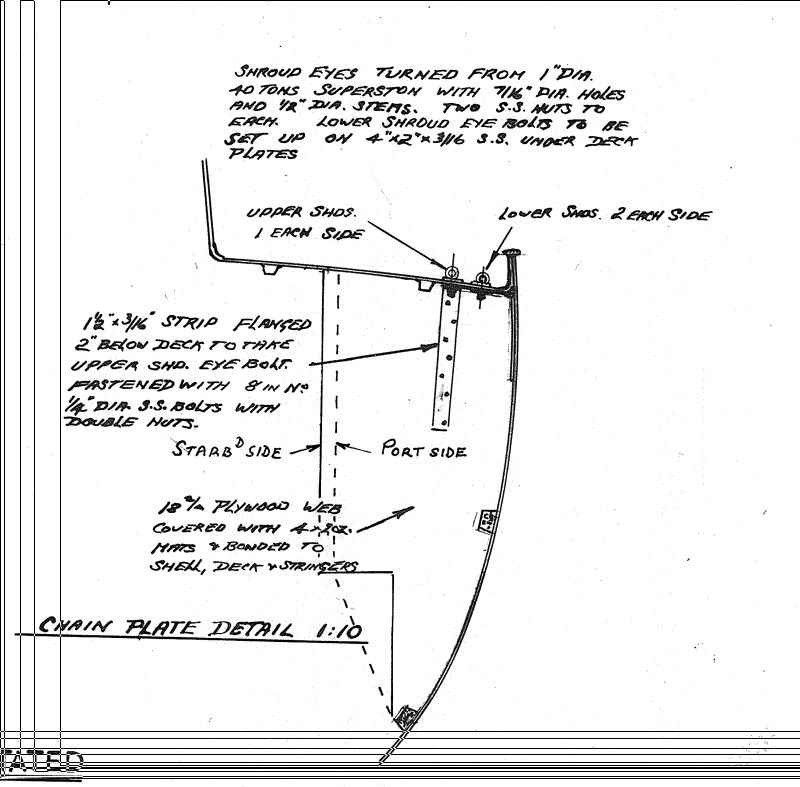 SHROUD EYES TURNED FROM 1" DIA.
40 TONS SUPERSTON WITH 7/16" DIA. HOLES
AND 1/2" DIA. STEMS. TWO S.S. NUTS TO
EACH. LOWER SHROUD EYE BOLTS TO BE
SET UP ON 4"x2"x3/16 S.S. UNDER DECK
PLATES
UPPER SHDS.
1 EACH SIDE
LOWER SHDS. 2 EACH SIDE
1 1/2"x3/16" STRIP FLANGED
2" BELOW DECK TO TAKE
UPPER SHD. EYE BOLT.
FASTENED WITH 8 IN No
1/4" DIA. S.S. BOLTS WITH
DOUBLE NUTS.
STARBD SIDE
PORT SIDE
18 m/m PLYWOOD WEB
COVERED WITH 4 x 2oz.
MATS & BONDED TO
SHELL, DECK & STRINGERS
CHAIN PLATE DETAIL 1:10
TATED